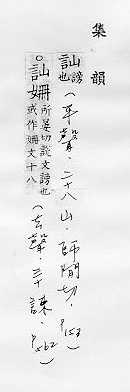 集韻
訕謗也（平聲．二十八山．師閒切．P153）
訕姍所晏切說文謗也或作姍文十八（去聲．三十諫．P562）